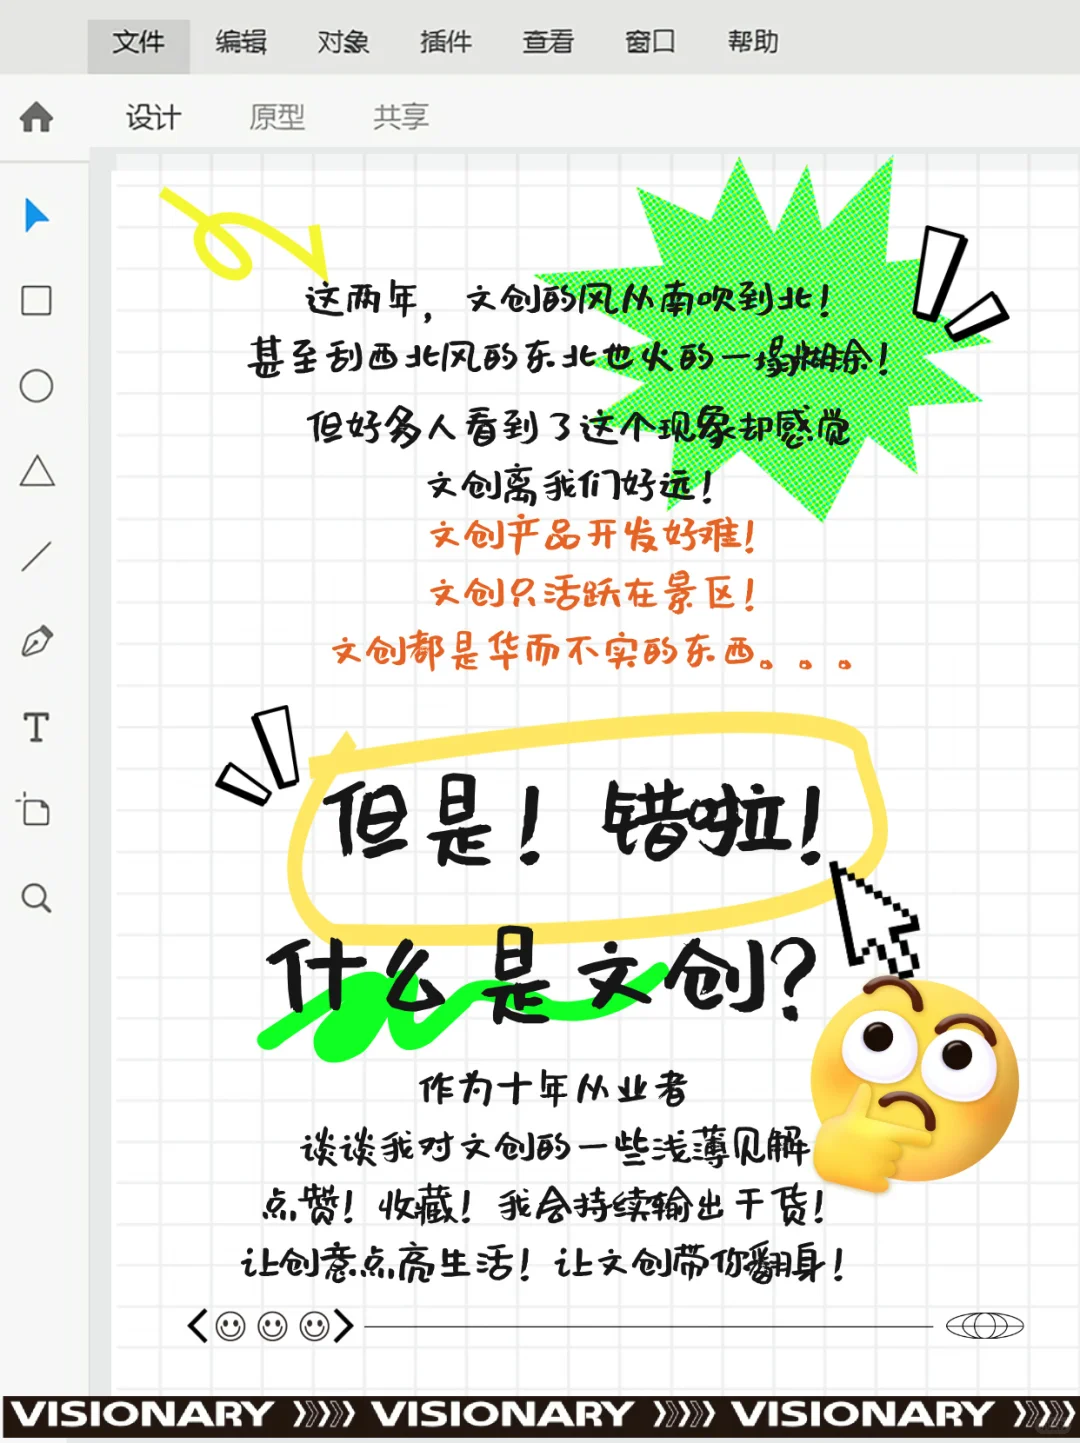 文件 编辑 对象 插件 查看 窗口 帮助
设计 原型 共享
这两年，文创的风从南吹到北！
甚至刮西北风的东北也火的一塌糊涂！
但好多人看到了这个现象却感觉
文创离我们好远！
文创产品开发好难！
文创只活跃在景区！
文创都是华而不实的东西。。。
但是！错啦！
什么是文创？
T
作为十年从业者
谈谈我对文创的一些浅薄见解
点赞！收藏！我会持续输出干货！
让创意点亮生活！让文创带你翻身！
VISIONARY VISIONARY VISIONARY